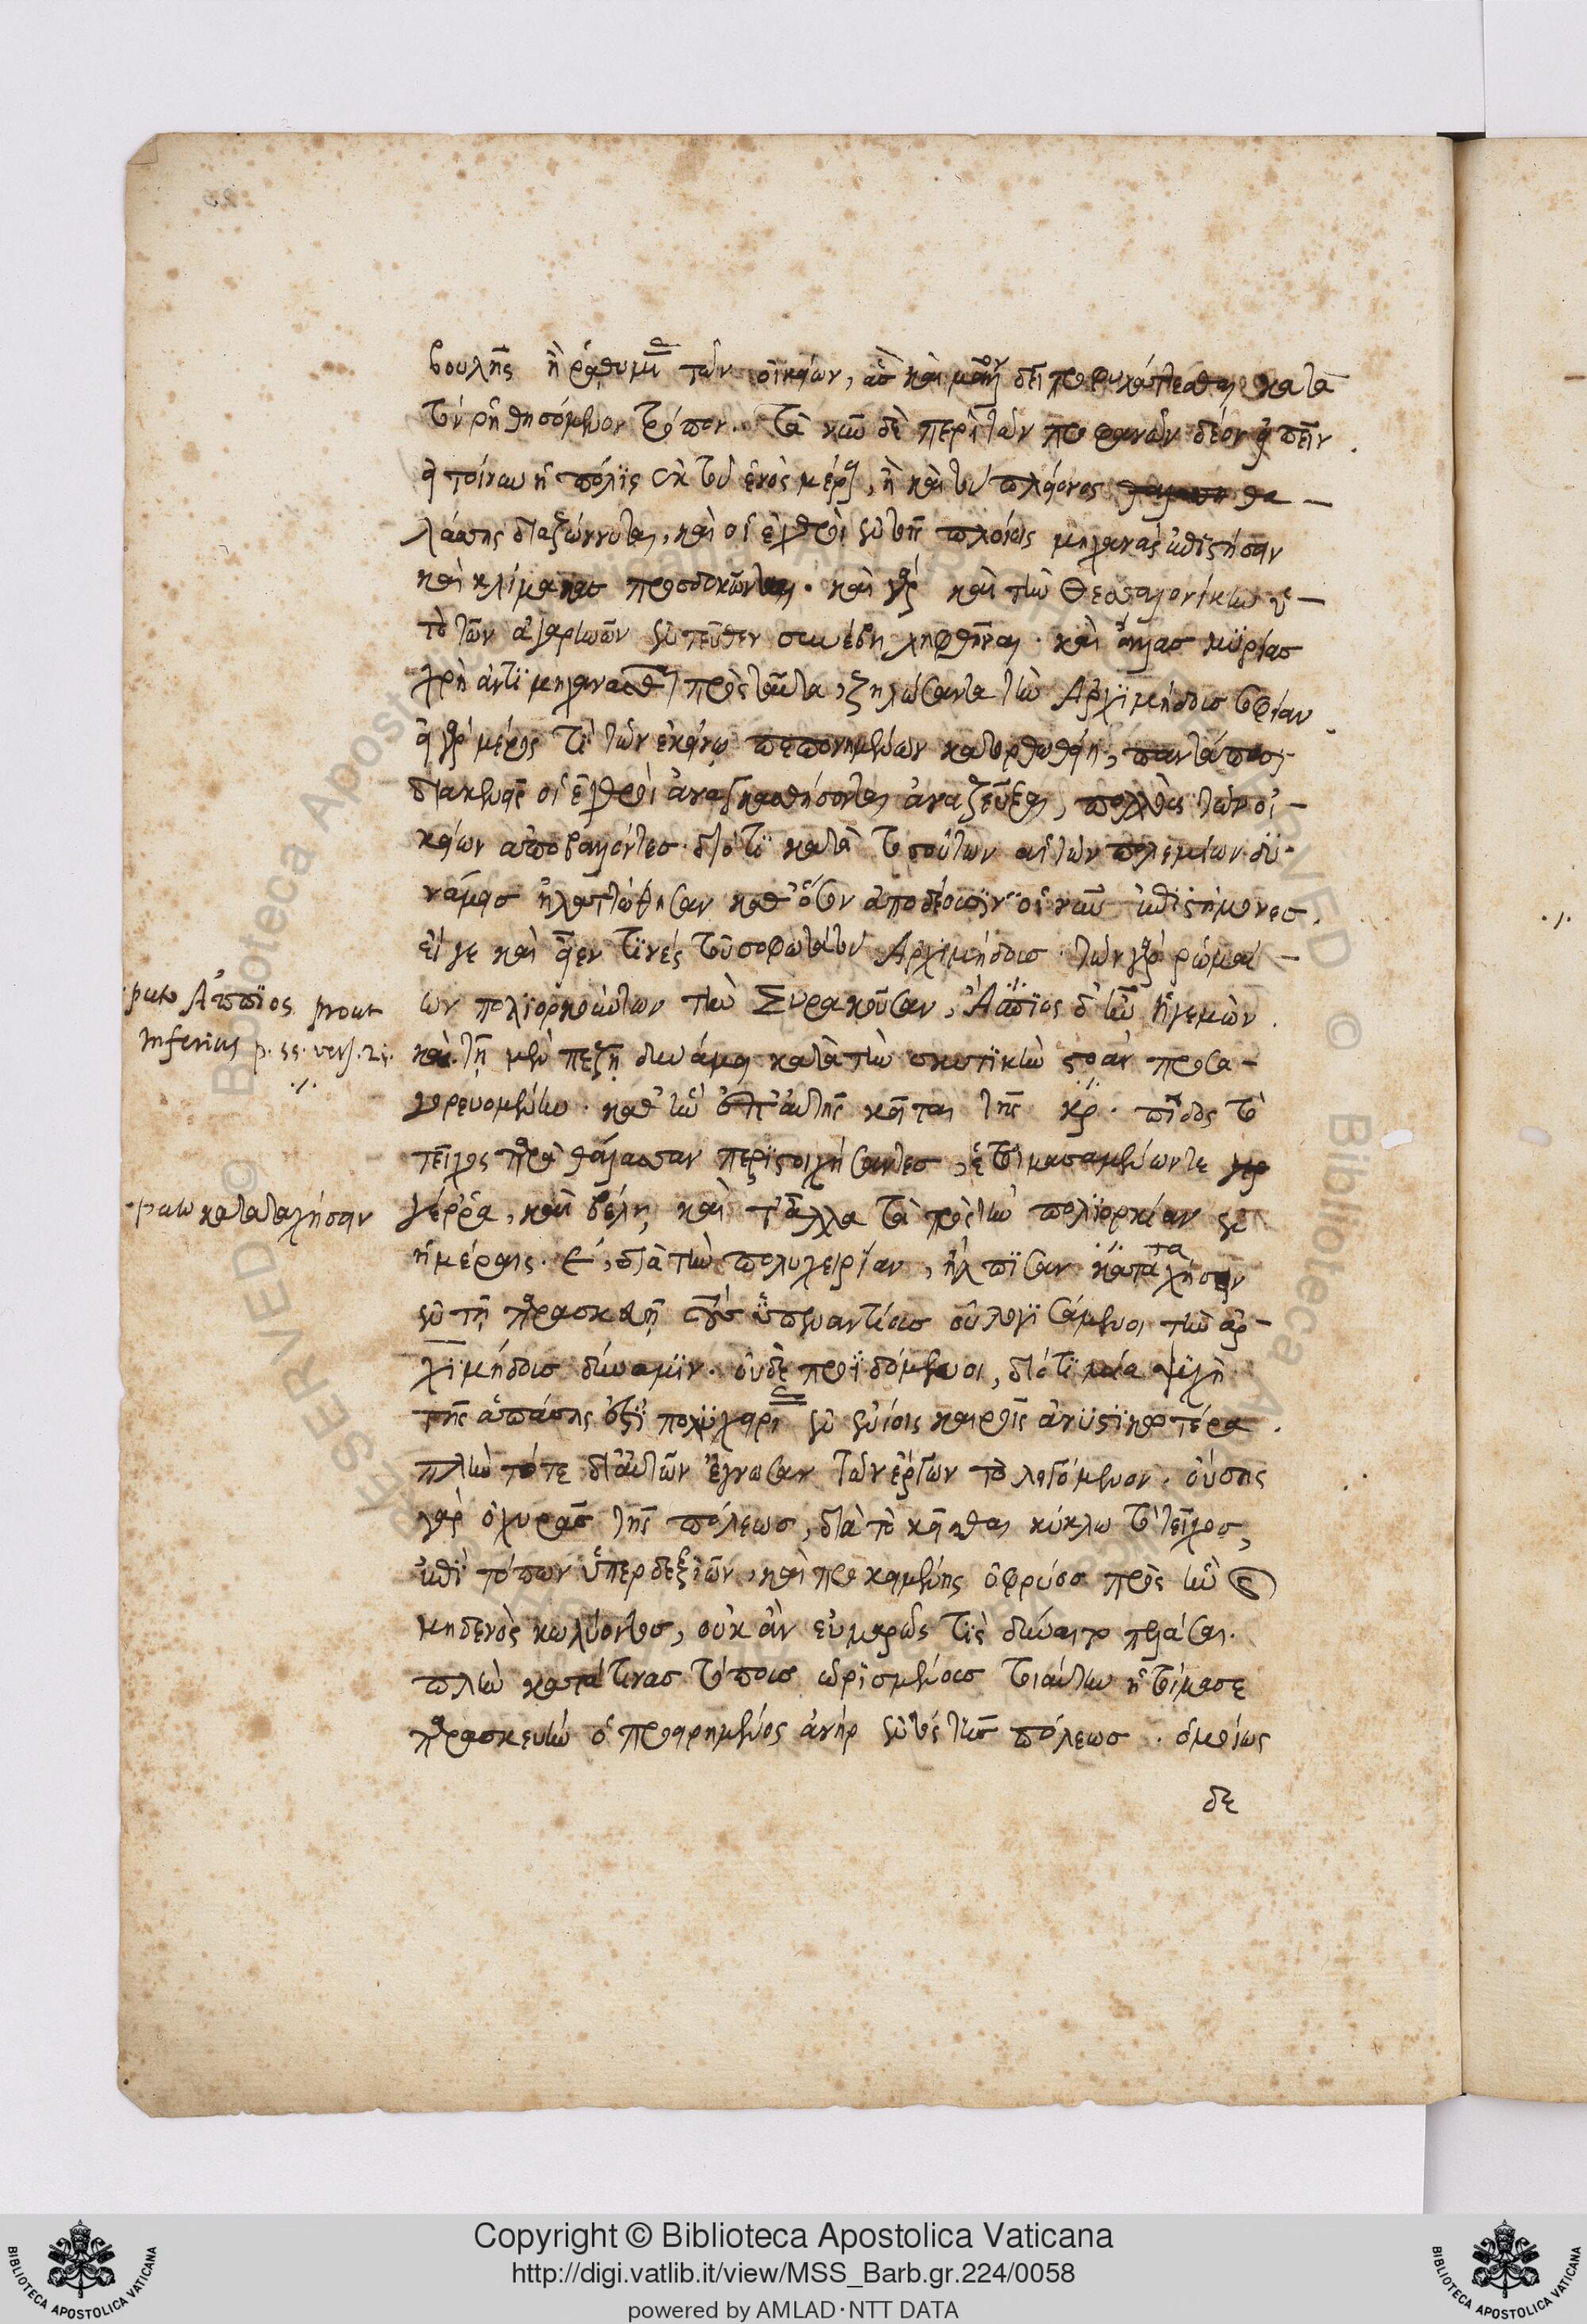 βουλῆς ἢ ῥαθυμίας τῶν οἰκείων, ἃς καὶ μᾶλλον δεῖ προφυλάττεσθαι κατὰ
τὸν ῥηθησόμενον τρόπον. τὰ νῦν δὲ περὶ τῶν προφανῶν δέον εἰπεῖν.
εἰ τοίνυν ἡ πόλις ἐκ τοῦ ἑνὸς μέρους, ἢ καὶ τοῦ πλείονος θα–
λάσσης διαζώννυται, καὶ οἱ ἐχθροὶ ἐν τοῖς πλοίοις μηχανὰς ἐπιστήσαν
καὶ κλίμακας προσδοκῶνται. καὶ γὰρ καὶ τὴν Θεσσαλονίκην ὑ–
πὸ τῶν ἀγαρηνῶν ἐντεῦθεν συνέβη ληφθῆναι. καὶ ἄλλας μυρίας
χρὴ ἀντιμηχανᾶσθαι πρὸς ταῦτα, ζηλώσαντα τὴν Ἀρχιμήδους σοφίαν
εἰ γὰρ μέρος τι τῶν ἐκείνῳ πεπονημένων κατορθωθείη, παντάπασι
διακενῆς οἱ ἐχθροὶ ἀναγκασθήσονται ἀναζεῦξαι, πολλοὺς τῶν οἰ–
κείων ἀποβαλόντες. διότι κατὰ τοσοῦτον αἱ τῶν πολεμίων δυ–
νάμεις ἠλαττώθησαν καθ' ὅσον ἀποδέουσιν οἱ νῦν ἐπιστήμονες.
εἴ γε καὶ εἶεν τινές τοῦ σοφωτάτου Ἀρχιμήδους. τῶν γὰρ ῥωμαί–
ων πολιορκούντων τὴν Συρακοῦσαν, Ἄππιος δ' ἦν ἡγεμὼν.
καὶ τῇ μὲν πεζῇ δυνάμει κατὰ τὴν σκυτικὴν στοὰν προσα–
γορευομένην. καθ' ἣν ἐπ' αὐτῆς κεῖται τῆς κρ. πίδος τὸ
τεῖχος παρὰ θάλασσαν περιστοιχήσαντες, ἑτοιμασαμένων τε
γέρρα, καὶ βέλη καὶ τἄλλα τὰ πρὸς τὴν πολιορκίαν ἐν
ἡμέραις. ε, διὰ τὴν πολυχειρίαν, ἤλπισαν καταταχήσειν
ἐν τῇ παρασκευῇ τοὺς ὑπεναντίους οὐ λογισάμενοι τὴν ἀρ–
χιμήδους δύναμιν. οὐδὲ προϊδόμενοι, διότι μία ψυχὴ
τῆς ἁπάσης ἐστὶ πολυχειρίας ἐν ἐνίοις καιροῖς ἀνυστικωτέρα.
πλὴν τότε δι' αὐτῶν ἔγνωσαν τῶν ἔργων τὸ λεγόμενον. οὔσης
γὰρ ὀχυρᾶς τῆς πόλεως, διὰ τὸ κεῖσθαι κύκλῳ τὸ τεῖχος,
ἐπὶ τόπων ὑπερδεξίων, καὶ προκειμένης ὀφρύος πρὸς ἣν
μηδενὸς κωλύοντος, οὐκ ἂν εὐμαρῶς τὶς δύναιτο πελάσαι.
πλὴν κατά τινας τόπους ὡρισμένους τοιαύτην ἡτοίμασε
παρασκευὴν ὁ προειρημένος ἀνὴρ ἐντὸς τῆς πόλεως. ὁμοίως
δε
puto Ἄππιος prout
inferius p. 55. vers. 25.
puto καταταχήσειν
Copyright © Biblioteca Apostolica Vaticana
http://digi.vatlib.it/view/MSS_Barb.gr.224/0058
powered by AMLAD·NTT DATA
BIBLIOTECA APOSTOLICA VATICANA
BIBLIOTECA APOSTOLICA VATICANA